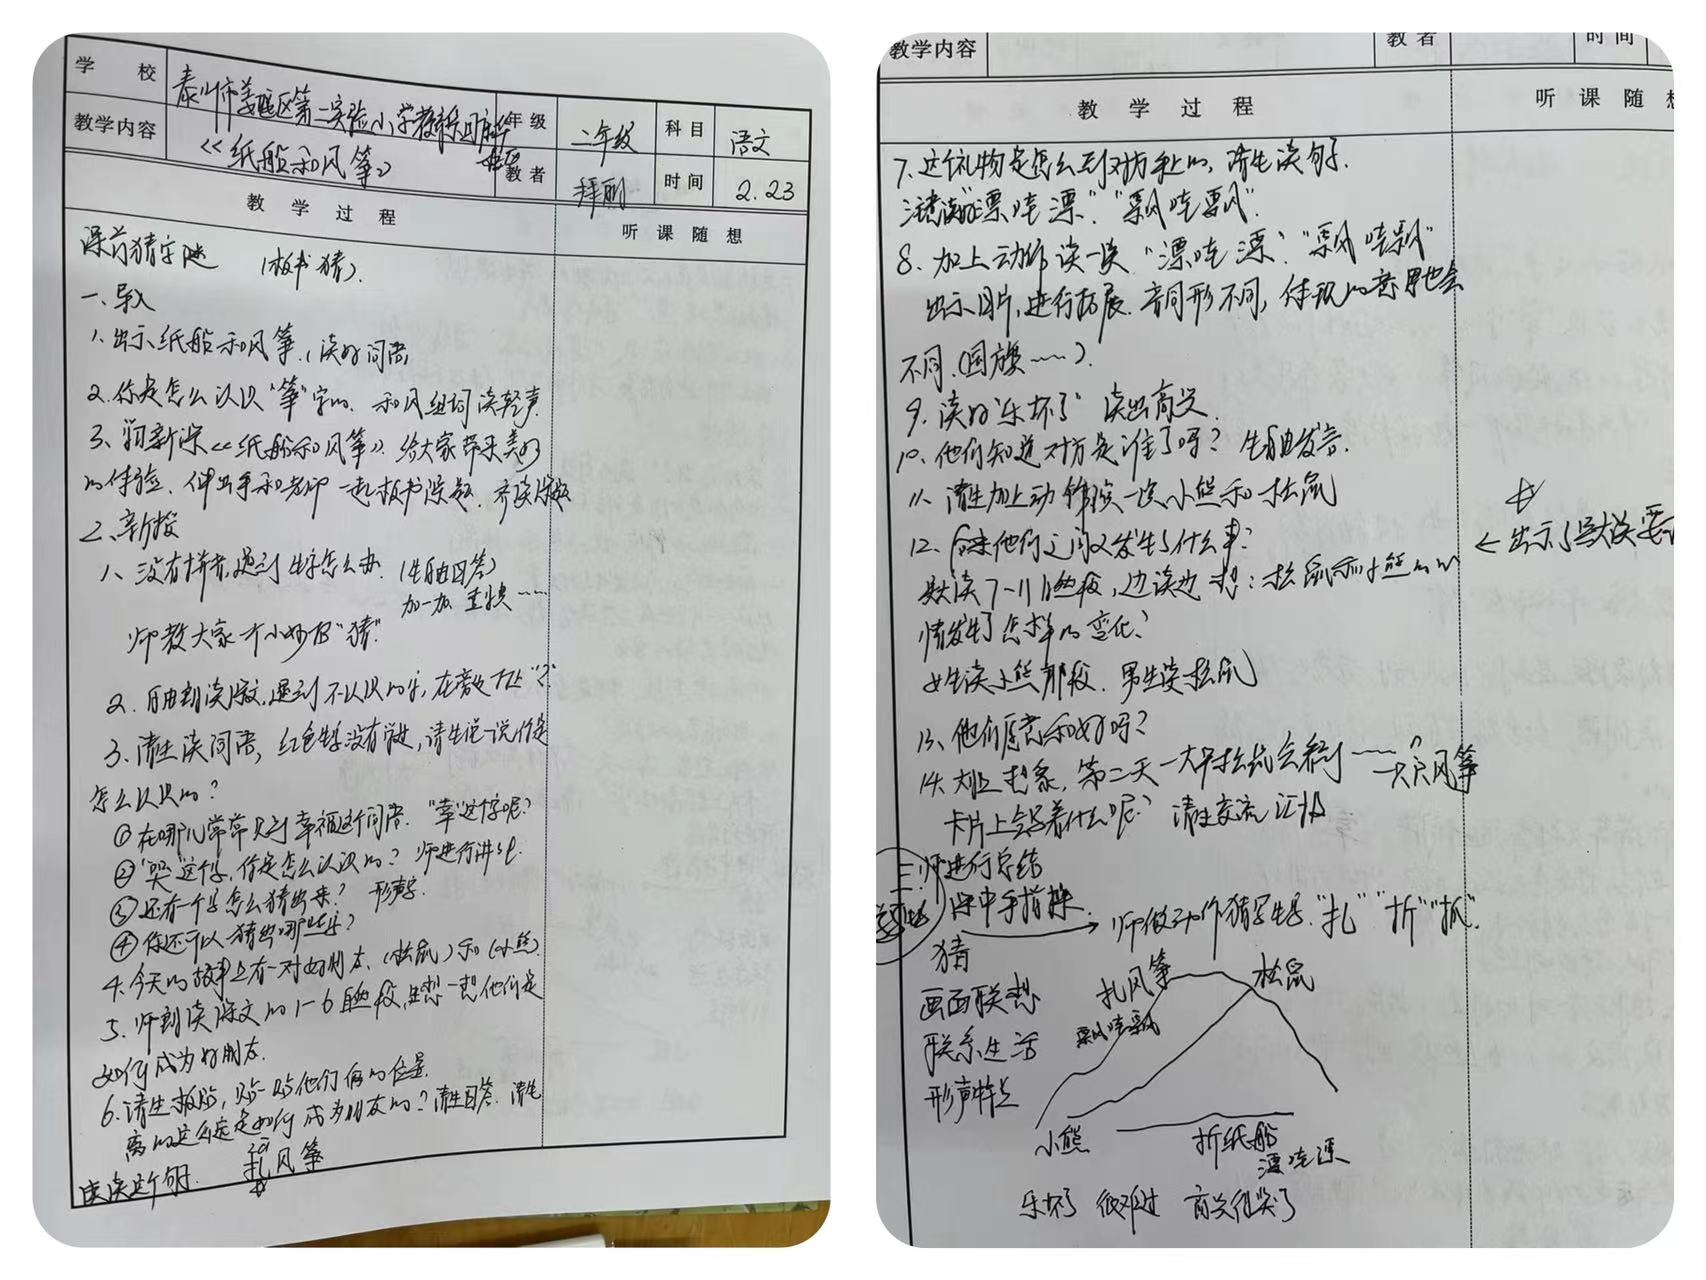 学 校
泰州市姜堰区第二实验小学教育集团
年 级
二年级
科 目
语文
教学内容
《纸船和风筝》
教 者
时 间
2.23
教 学 过 程
听 课 随 想
课前猜字谜 (板书 猜).
一、导入
1. 出示纸船和风筝,(读好词语
2. 你是怎么认识“筝”字的. 和风组词读轻声.
3. 新课《纸船和风筝》给大家带来美好
的体验. 伸出手和老师一起板书课题. 齐读课题
二、新授
1、没有拼音,遇到生字怎么办. (生自由回答)
加一加 ……
师教大家一个小妙招“猜”.
2. 自由朗读课文,遇到不认识的字, 在旁边打上“?”
3. 请生读词语, 红色生字没有学过, 请生说一说你是
怎么认识的?
① 在哪儿常常见到幸福这个词语. “幸”这个字呢?
② “哭”这个字, 你是怎么认识的? 师进行讲解.
③ 还有一个字怎么猜出来? 形声字.
④ 你还可以猜出哪些字?
4. 今天的故事上有一对好朋友. (松鼠) 和 (小熊).
5. 师朗读课文的1-6自然段, 生想一想他们是
如何成为好朋友.
6. 请生板贴, 贴一贴他们俩的位置.
离的这么远是如何成为朋友的? 请生回答. 请生
读读这个句子.
扎风筝
教学内容
教 者
时 间
教 学 过 程
听 课 随 想
7. 这个礼物是怎么到对方手上的, 请生读句子.
“漂哇漂”“飘哇飘”.
8. 加上动作读一读 “漂哇漂”“飘哇飘”
出示图片, 进行拓展. 音同形不同, 体现的意思也会
不同. (国旗……).
9. 读好“乐坏了” 读出高兴.
10. 他们知道对方是谁了吗? 生自由发言.
11. 请生加上动作演一演小熊和松鼠
12. 后来他们之间又发生了什么事?
← 出示了默读要
默读7-11自然段, 边读边想: 松鼠和小熊的心
情发生了怎样的变化?
女生读小熊那段. 男生读松鼠
13. 他们愿意和好吗?
14. 第二天一大早松鼠会看到……? 一只风筝
卡片上会写着什么呢? 请生交流汇报
三. 师进行总结
课中手指操. → 师做动作猜写生字“扎”“折”“抓”.
猜
画面联想
联系生活
形声特点
扎风筝
松鼠
飘哇飘
小熊
折纸船
漂哇漂
乐坏了 很难过 高兴得哭了